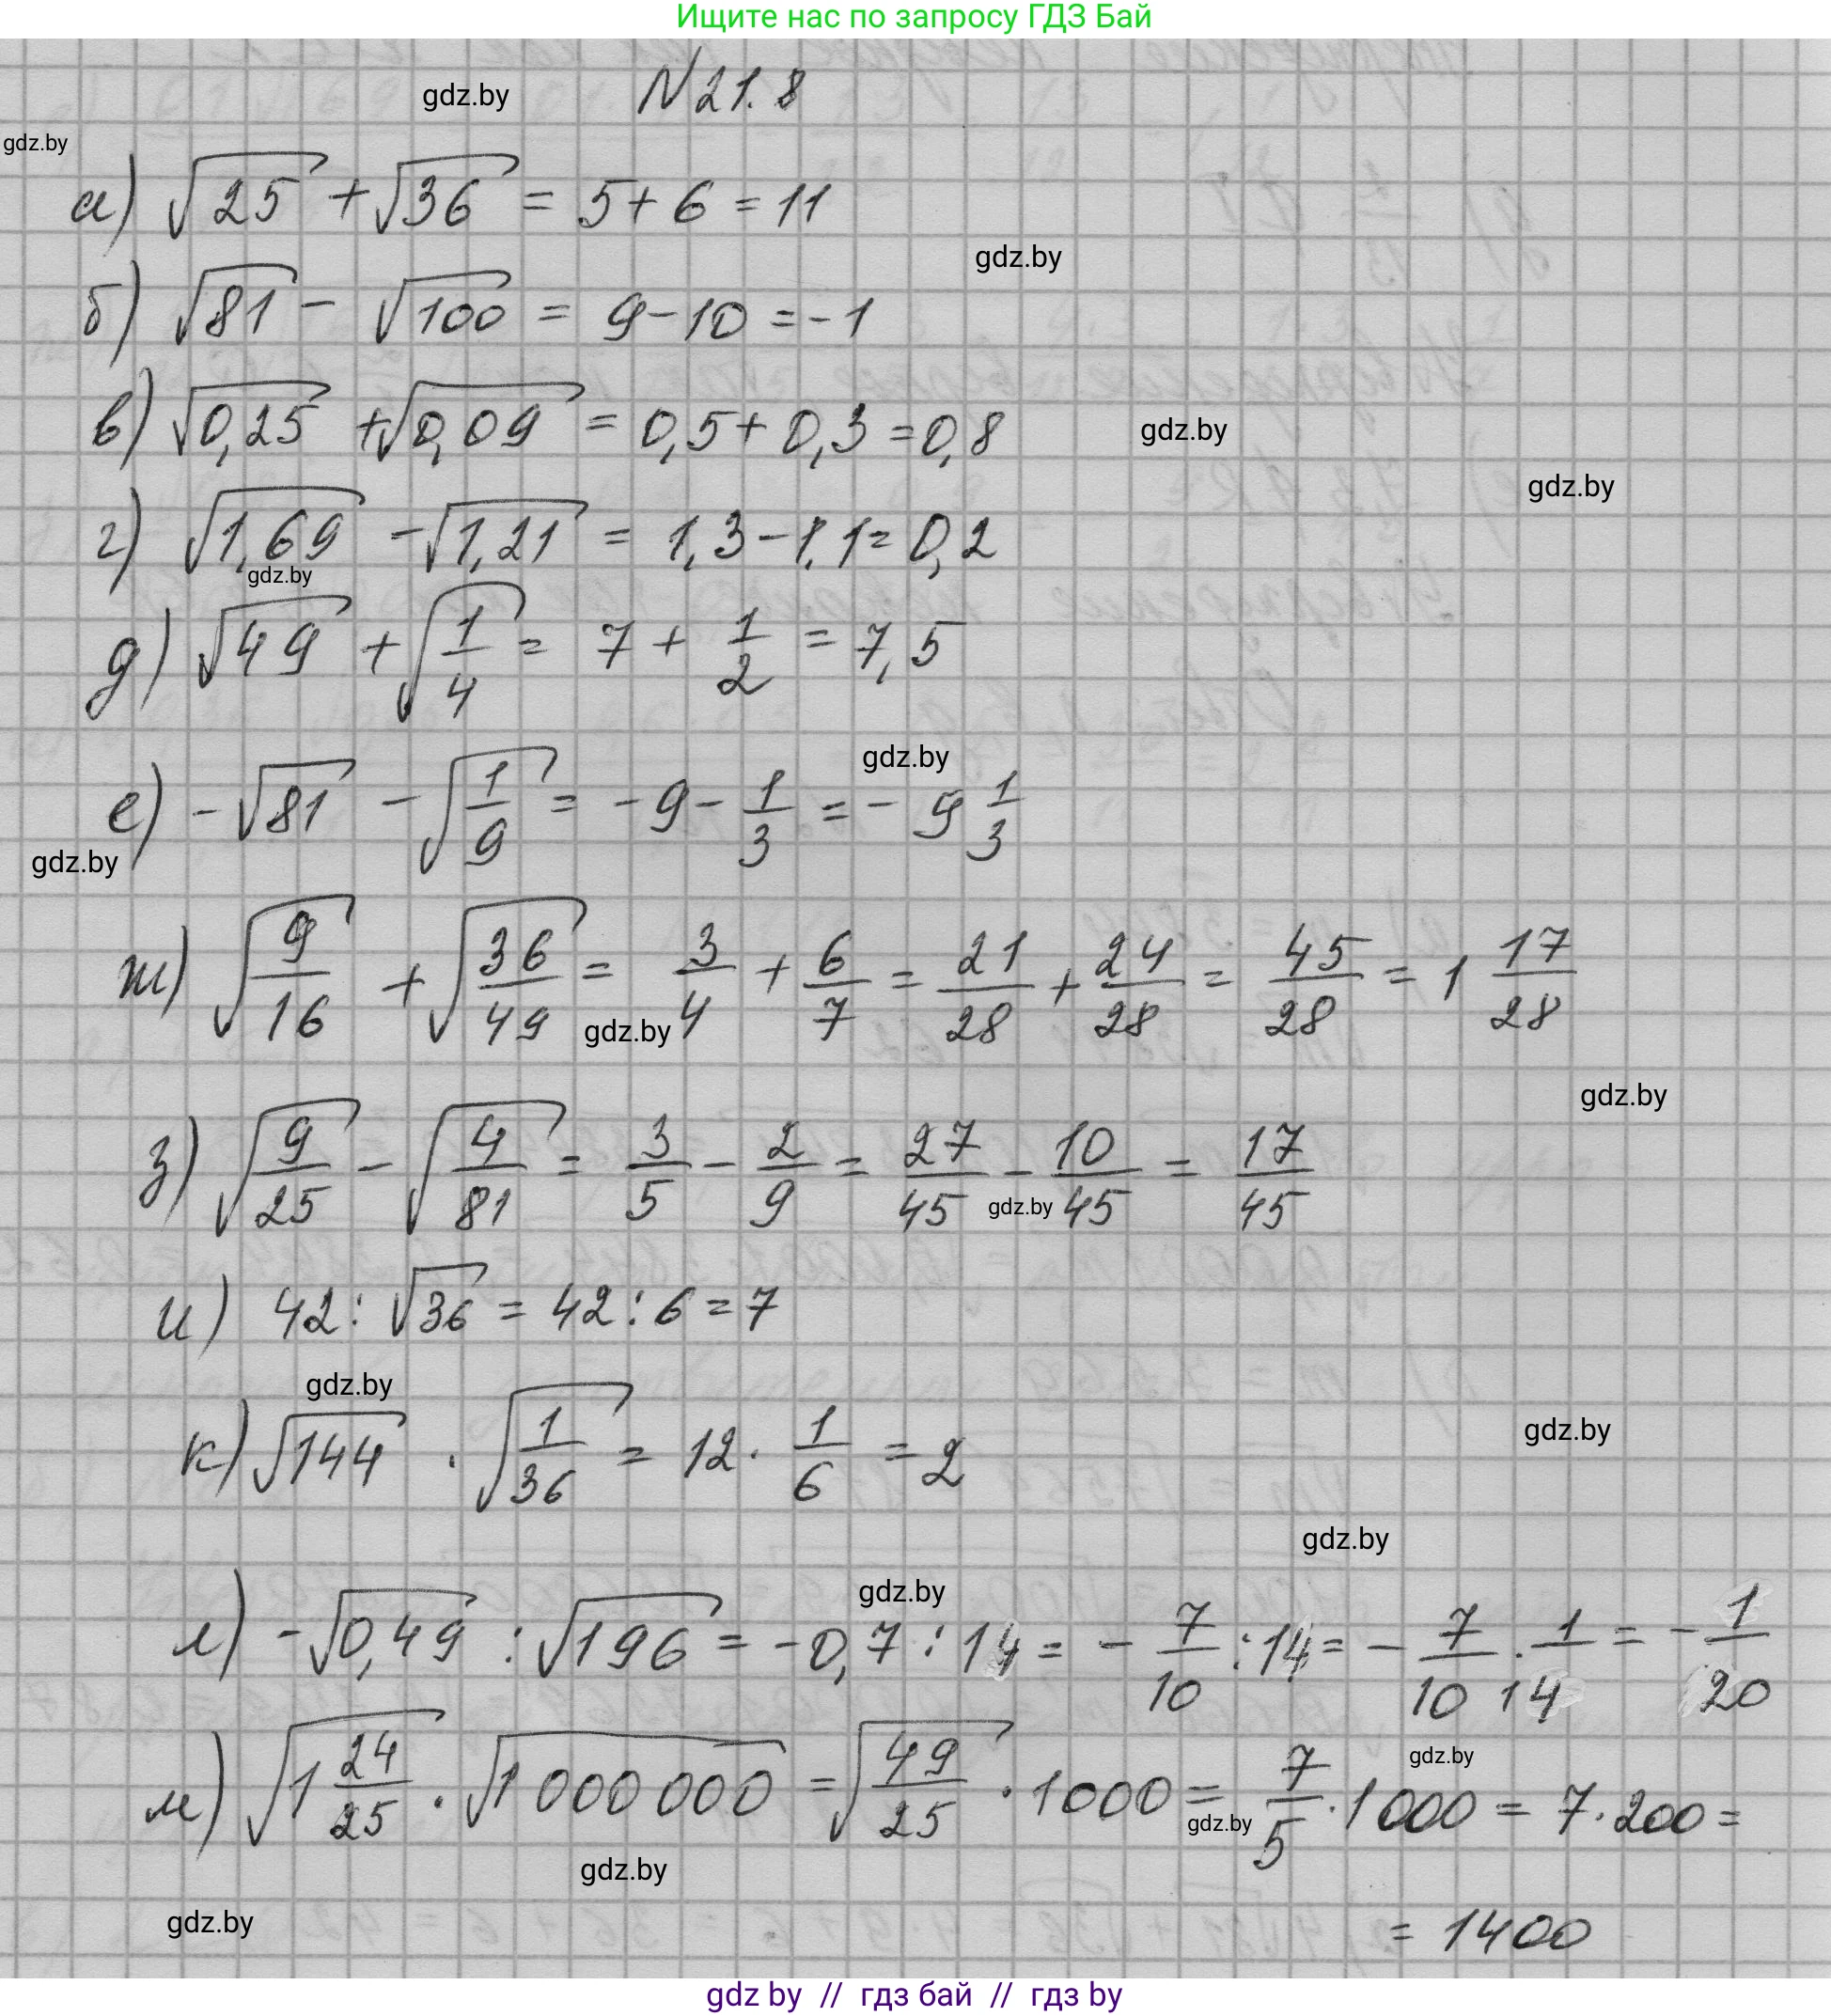 Ищите нас по запросу ГДЗ Бай
gdz.by N 21.8
gdz.by
а) √25 + √36 = 5 + 6 = 11
gdz.by
б) √81 - √100 = 9 - 10 = -1
в) √0,25 + √0,09 = 0,5 + 0,3 = 0,8 gdz.by
gdz.by
г) √1,69 - √1,21 = 1,3 - 1,1 = 0,2
gdz.by
д) √49 + √(1/4) = 7 + 1/2 = 7,5
gdz.by
е) -√81 - √(1/9) = -9 - 1/3 = -9 1/3
gdz.by
ж) √(9/16) + √(36/49) = 3/4 + 6/7 = 21/28 + 24/28 = 45/28 = 1 17/28
gdz.by
gdz.by
з) √(9/25) - √(4/81) = 3/5 - 2/9 = 27/45 - 10/45 = 17/45
gdz.by
и) 42 : √36 = 42 : 6 = 7
gdz.by
gdz.by
к) √144 · √(1/36) = 12 · 1/6 = 2
gdz.by
gdz.by
л) -√0,49 : √196 = -0,7 : 14 = -7/10 : 14 = -7/10 · 1/14 = -1/20
gdz.by
м) √(1 24/25) · √1 000 000 = √(49/25) · 1000 = 7/5 · 1000 = 7 · 200 =
gdz.by
gdz.by
gdz.by
= 1400
gdz by // гдз бай // гдз by